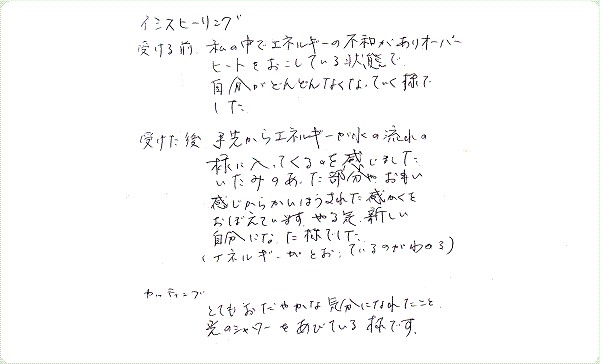 イシスヒーリング
受ける前 私の中でエネルギーの不和がありオーバー
ヒートをおこしている状態で
自分がどんどんなくなっていく様で
した
受けた後 手先からエネルギーが水の流れの
様に入ってくるのを感じました
いたみのあった部分やおもい
感じからかいほうされた感かくを
おぼえています
自分になった様でした
(エネルギーがとおっているのがわかる)
カッティング
とてもおだやかな気分になれたこと
光のシャワーをあびている様です.